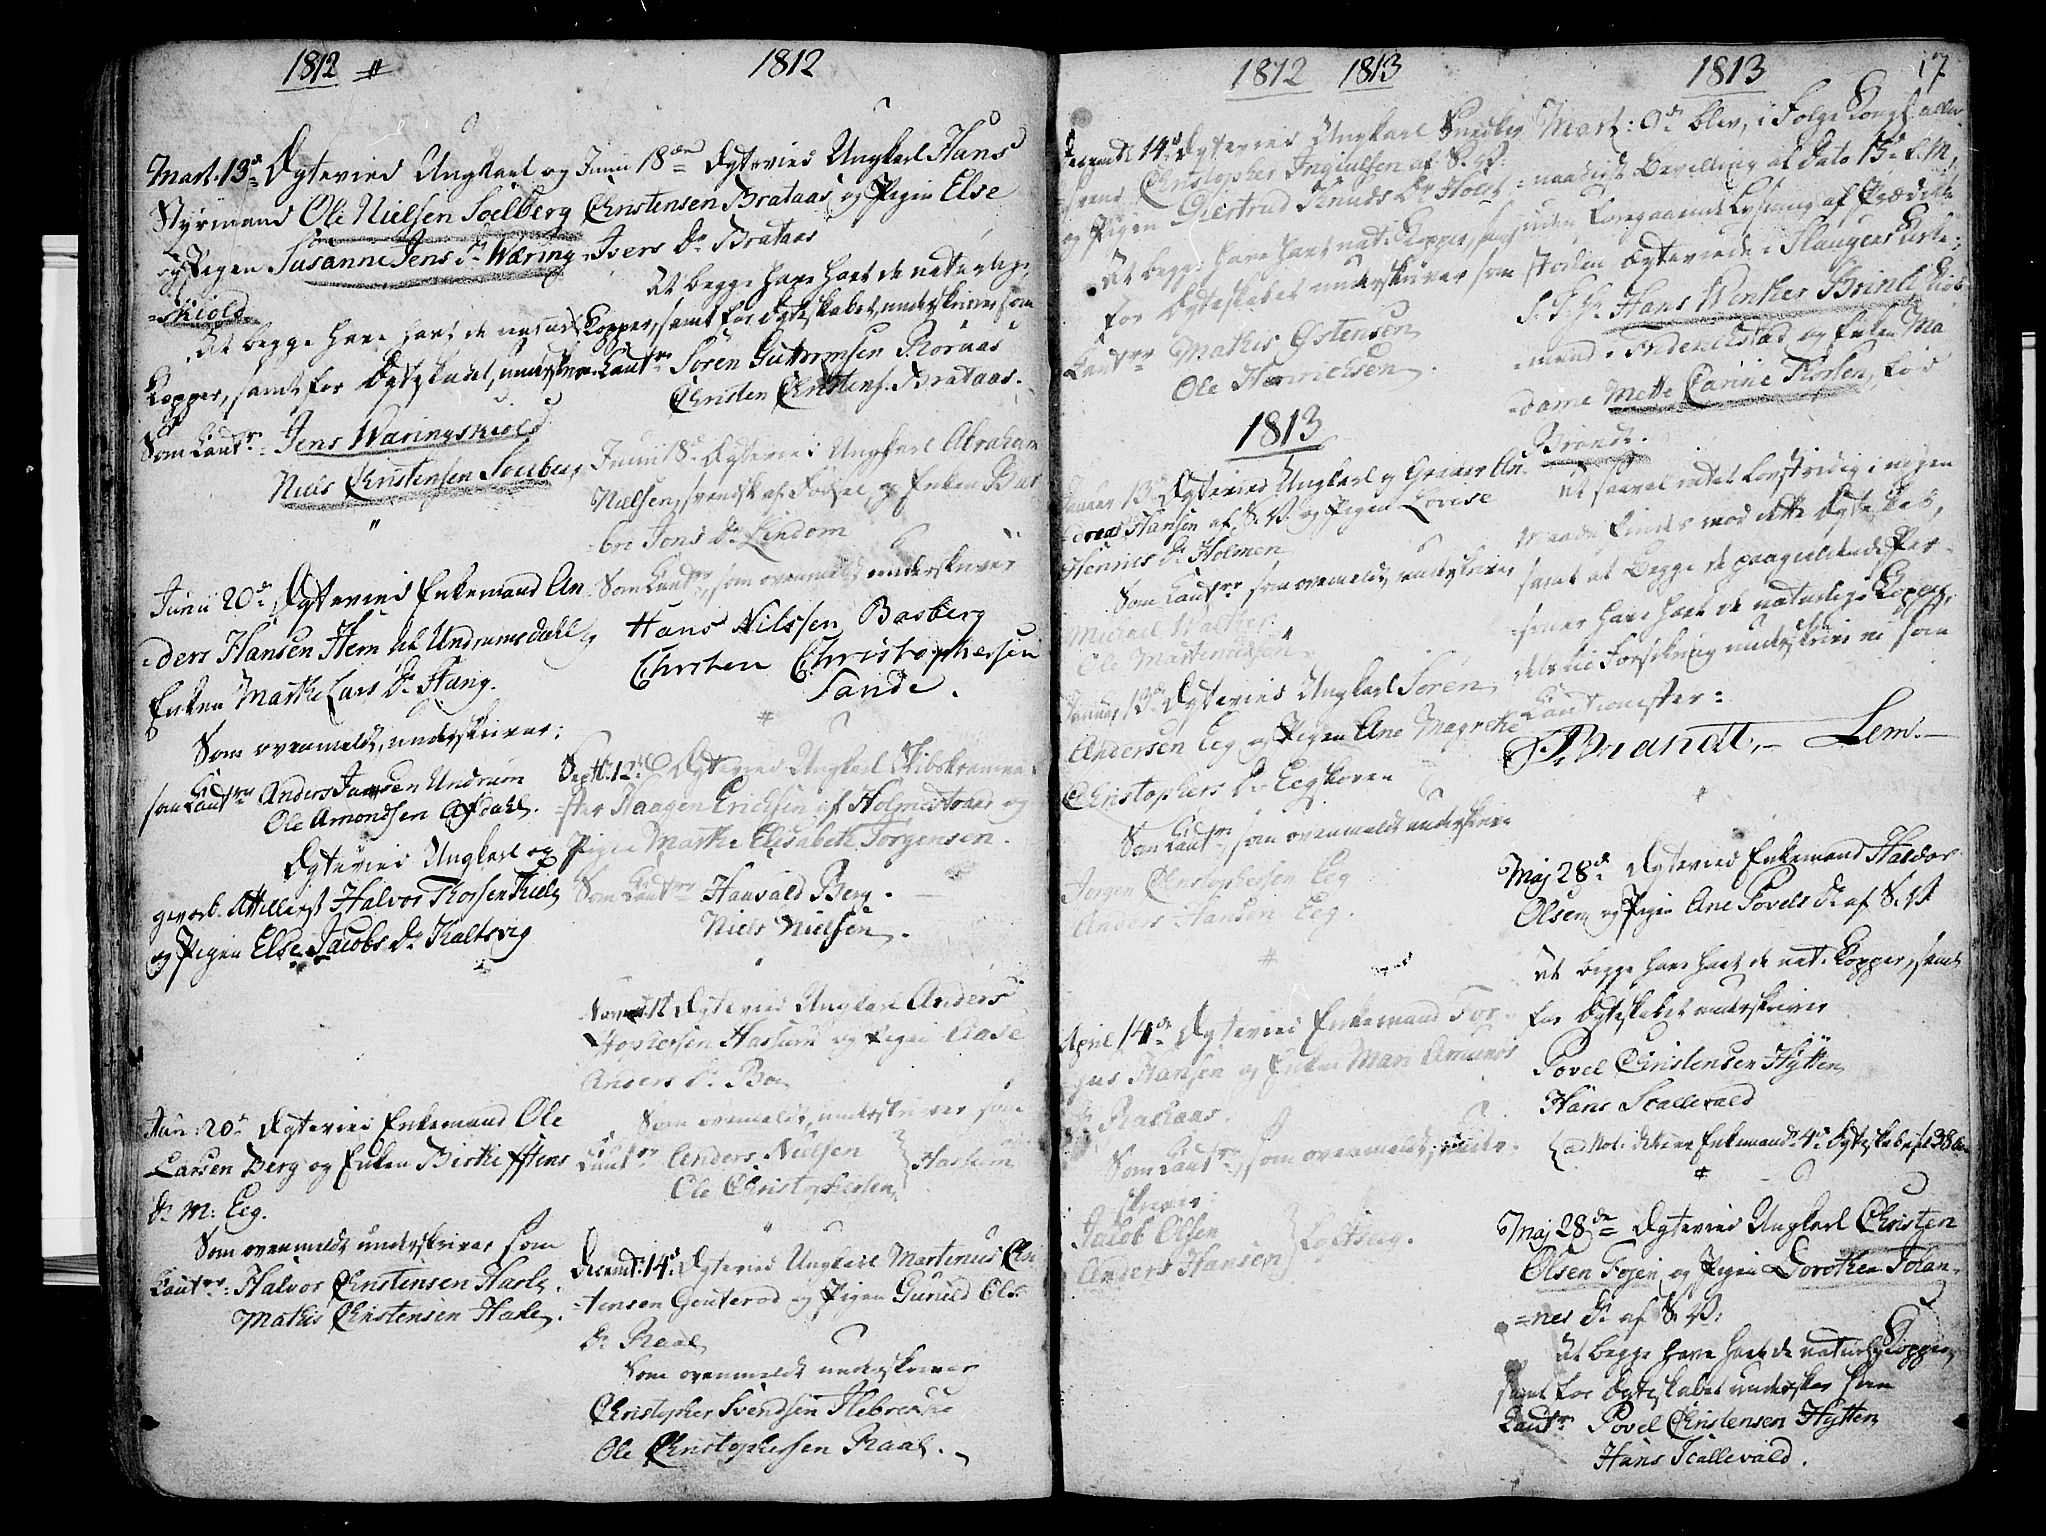 1812
Mart. 13de Ægteviede Ungkarl og
Styrmand Ole Nielsen Soelberg
og Pigen Susanne Jens Dr. Wæring-
=skiold
At begge have havt de naturl.
Kopper, samt for Ægteskabet, underskriver
Som Caut.r Jens Wæringskiold
Niels Christensen Soelberg
Junii 20de Ægteviede Enkemand An
=ders Hansen Hem til Undrumsdahl og
Enken Marthe Lars Dr. Haug.
Som ovenmeldt, underskriver,
som Caut.r Anders Jansen Undrum
Ole Amondsen Afdahl.
Ægteviede Ungkarl og
gevorb. Attillerist Halvor Thorsen
og Pigen Else Jacobs Dr. Kaltsvig
Jun: 20de Ægteviede Enkemand Ole
Larsen Berg og Enken Birthe
Dr. M: Eeg.
Som ovenmeldt underskriver som
Caut.r: Halvor Christensen Hasle.
Mathis Christensen Hasle.
1812
Junii 18de Ægteviede Ungkarl Hans
Christensen Brataas og Pigen Else
Ivers Dr. Brataas
At begge have havt de naturlige
Kopper, samt for Ægteskabet, underskriver som
Caut.r Søren Guttormsen Roraas
Christen Christens. Brataas.
Junii 18de Ægteviede Ungkarl Abraham
Nielsen, svendsk af Fødsel, og Enken Bar
=bro Jons Dr. Lindom
Som Caut.r, som ovenmeldt underskriver
Hans Nilssen Basberg
Chrsten Christophersen
Sande.
Septbr. 12te Ægteviede Ungkarl Skibstømme
=ster Haagen Erichsen af Holmestrand og
Pigen Marthe Elisabeth Torgensen.
Som Caut.r Haavald Berg.
Niels Nielsen.
Novemb. 12 Ægteviede Ungkarl Anders
Stophersen Hassum og Pigen Aase
Anders Dr. Boe
Som ovenmeldt, underskriver som
Caut.r Anders Nielsen
Ole Christophersen } Hassum
Decemb: 14de Ægteviede Ungkarl Martinus Chr
=stensen Gouterod og Pigen Gunild Ols
Dr. Raal
Som ovenmeldt underskriver
Christopher Svendsen
Ole Christophersen Raal.
1812 1813
Decemb. 14de Ægteviede Ungkarl Snedker
svend Christopher Ingiulfsen af S. V.
og Pigen Giertrud Knuds Dr. Holst
At begge have havt nat. Kopper, samt
for Ægteskabet underskriver som
Caut.r Mathis Østensen
Ole Henrichsen.
1813
Januar 13de Ægteviede Ungkarl og An
=dreas Hansen af S. V. og Pigen Lovise
Hennies Dr. Holmen
Som Caut.r som ovenmeldt, underskriver
Michael Walther
Ole Martinussen
Januar 13de Ægteviede Ungkarl Søren
Andersen Eeg og Pigen Ane Magrethe
Christophers Dr. Eegskoven
Som Caut.r som ovenmeldt underskriver
Jørgen Christophersen Eeg
Anders Hansen Eeg.
April 14de Ægteviede Enkemand Tor-
=gus Hansen og Enken Mari Amunds
Dr. Rakaas.
Som Caut.r, som ovenmeldt, under-
skriver
Jacob Olsen
Anders Hansen }
1813
17
Mart: 9de blev, i Følge Kongl. aller-
=naadigst Bevilling af Dato 15de f. M.,
uden foregaaende Lysning af Prædike
stolen Ægteviede i Slaugens Kirke
S. T. Hr. Hans Wenker Brinck Kiøb-
mand i Frederichstad og Enken Ma
=dame Mette Carine Thorsen, fød
Brandt.
At saavel intet lovstridig i nogen
Maade findes mod dette Ægteskab,
samt at begge de paagieldende Per-
=soner have havt de naturlige Kopper,
derfor Forsikring underskrive vi som
Cautionister:
Brandt. Lem.
Maj 28de Ægteviede Enkemand Halvor
Olsen og Pigen Ane Povels Dr. af S. V.
At begge have havt de nat. Kopper, samt
for Ægteskabet underskriver
Povel Christensen Hytten
Hans Scallevald
(ad Not: dette er Enkemands 4de Ægteskab
Maj 28de Ægteviede Ungkarl Christen
Olsen Fosen og Pigen Dorothea Johan-
=nes Dr. af S. V:
At begge have havt de naturl. Kopper,
samt for Ægteskabet underskr. som
Caut.r Povel Christensen Hytten
Hans Scallevald.